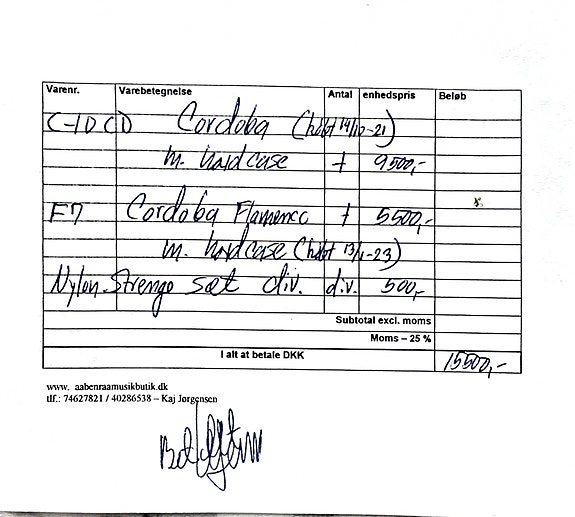 Varenr. Varebetegnelse Antal enhedspris Beløb
C-10 CD Cordoba (købt 14/10-21)
m. hardcase 1 9500,-
F7 Cordoba Flamenco 1 5500,-
m. hardcase (købt 13/1-23)
Nylon Strenge sæt div. div. 500,-
Subtotal excl. moms
Moms – 25 %
I alt at betale DKK 15500,-
www. aabenraamusikbutik.dk
tlf.: 74627821 / 40286538 – Kaj Jørgensen